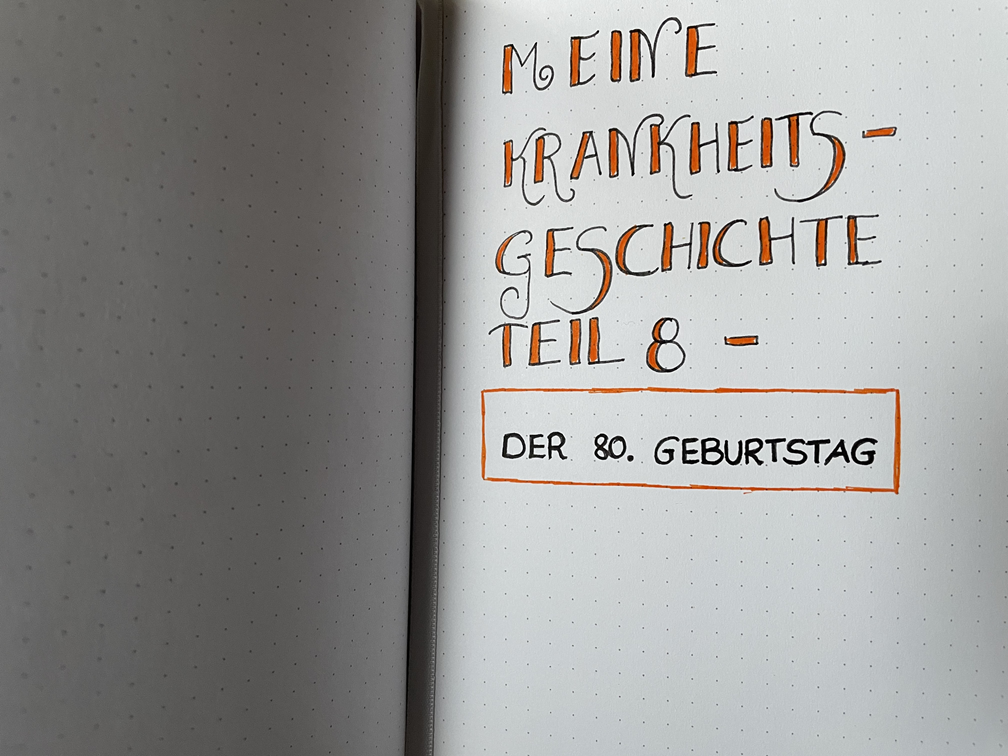 MEINE
KRANKHEITS-
GESCHICHTE
TEIL 8 -
DER 80. GEBURTSTAG